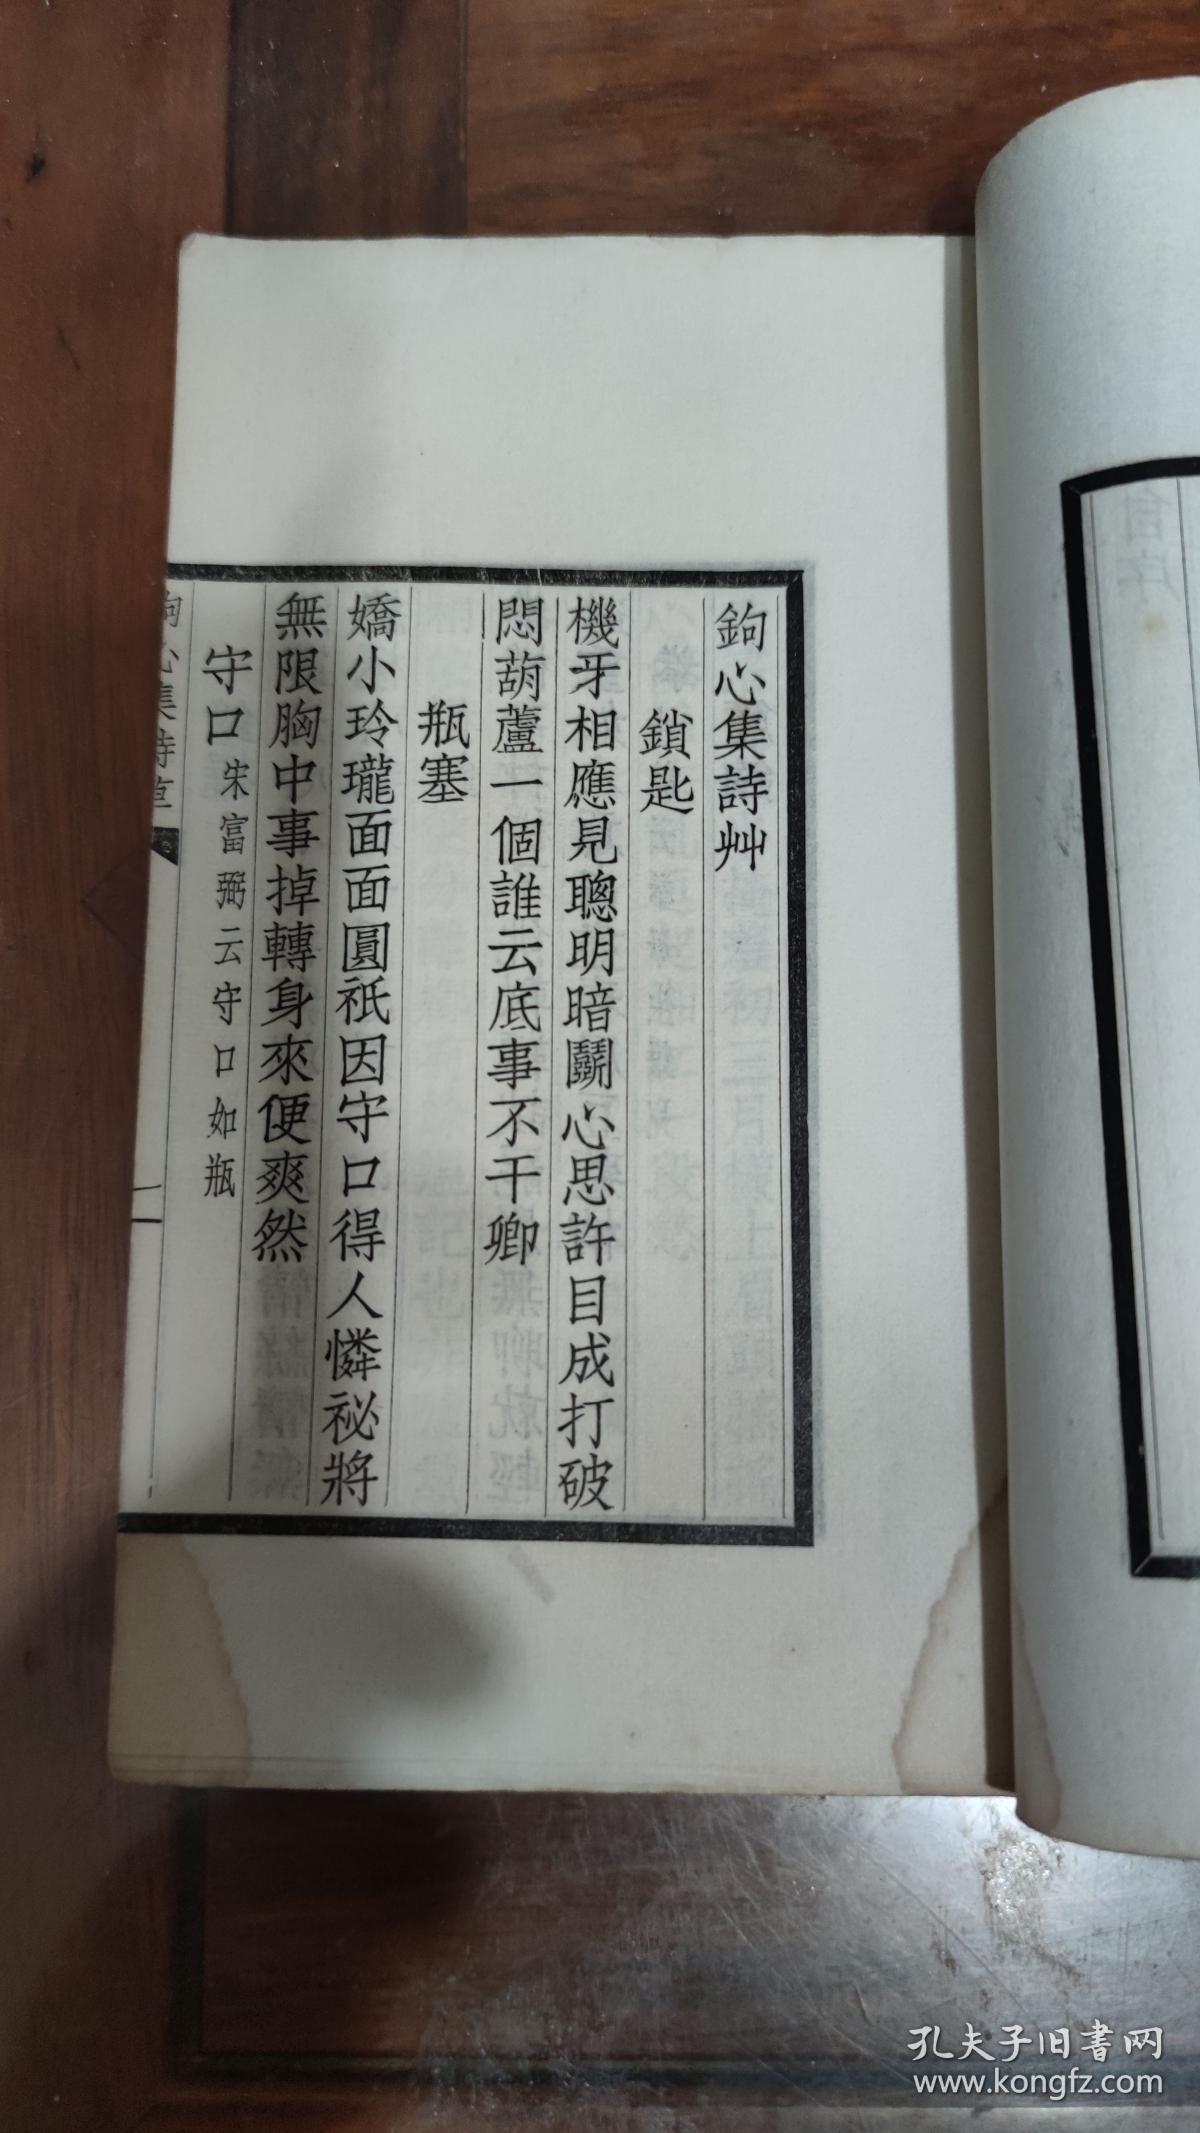 自序
鉤心集詩艸
鎖匙
機牙相應見聰明暗鬭心思許目成打破
悶葫蘆一個誰云底事不干卿
瓶塞
嬌小玲瓏面面圓祇因守口得人憐祕將
無限胸中事掉轉身來便爽然
守口宋富弼云守口如瓶
鉤心集詩草
一
孔夫子旧书网
www.kongfz.com